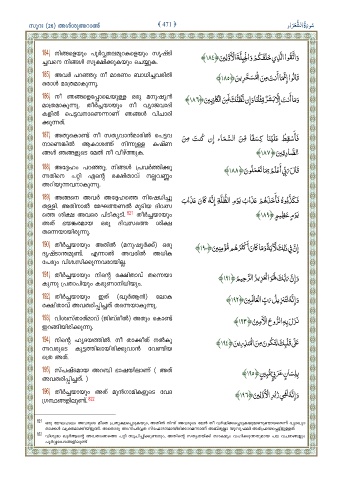 സൂറഃ (26) അശ്ശുഅറാഅ് ﴾ 471 ﴿ سُورَةُ الشُّعَرَاءِ
184) നിങ്ങളെയും പൂർവ്വതലമുറകളെയും സൃഷ്ടി
ച്ചവനെ നിങ്ങൾ സൂക്ഷിക്കുകയും ചെയ്യുക.
وَاتَّقُوا الَّذِي خَلَقَكُمْ وَالْجِبِلَّةَ الْأَوَّلِينَ ﴿١٨٤﴾
185) അവർ പറഞ്ഞു: നീ മാരണം ബാധിച്ചവരിൽ
ഒരാൾ മാത്രമാകുന്നു.
قَالُوا إِنَّمَا أَنتَ مِنَ الْمُسَحَّرِينَ ﴿١٨٥﴾
186) നീ ഞങ്ങളെപ്പോലെയുള്ള ഒരു മനുഷ്യൻ
മാത്രമാകുന്നു. തീർച്ചയായും നീ വ്യാജവാദി
കളിൽ പെട്ടവനാണെന്നാണ് ഞങ്ങൾ വിചാരി
ക്കുന്നത്.
وَمَا أَنتَ إِلَّا بَشَرٌ مِّثْلُنَا وَإِن نَّظُنُّكَ لَمِنَ الْكَاذِبِينَ ﴿١٨٦﴾
187) അതുകൊണ്ട് നീ സത്യവാൻമാരിൽ പെട്ടവ
നാണെങ്കിൽ ആകാശത്ത് നിന്നുള്ള കഷ്ണ
ങ്ങൾ ഞങ്ങളുടെ മേൽ നീ വീഴ്ത്തുക.
فَأَسْقِطْ عَلَيْنَا كِسَفًا مِّنَ السَّمَاءِ إِن كُنتَ مِنَ
الصَّادِقِينَ ﴿١٨٧﴾
188) അദ്ദേഹം പറഞ്ഞു: നിങ്ങൾ പ്രവർത്തിക്കു
ന്നതിനെ പറ്റി എന്റെ രക്ഷിതാവ് നല്ലവണ്ണം
അറിയുന്നവനാകുന്നു.
قَالَ رَبِّي أَعْلَمُ بِمَا تَعْمَلُونَ ﴿١٨٨﴾
189) അങ്ങനെ അവർ അദ്ദേഹത്തെ നിഷേധിച്ചു
തള്ളി. അതിനാൽ മേഘത്തണൽ മൂടിയ ദിവസ
ത്തെ ശിക്ഷ അവരെ പിടികൂടി. തീർച്ചയായും
അത് ഭയങ്കരമായ ഒരു ദിവസത്തെ ശിക്ഷ
തന്നെയായിരുന്നു.
فَكَذَّبُوهُ فَأَخَذَهُمْ عَذَابُ يَوْمِ الظُّلَّةِ إِنَّهُ كَانَ عَذَابَ
يَوْمٍ عَظِيمٍ ﴿١٨٩﴾
190) തീർച്ചയായും അതിൽ (മനുഷ്യർക്ക്) ഒരു
ദൃഷ്ടാന്തമുണ്ട്. എന്നാൽ അവരിൽ അധിക
പേരും വിശ്വസിക്കുന്നവരായില്ല.
إِنَّ فِي ذَٰلِكَ لَآيَةً وَمَا كَانَ أَكْثَرُهُم مُّؤْمِنِينَ ﴿١٩٠﴾
191) തീർച്ചയായും നിന്റെ രക്ഷിതാവ് തന്നെയാ
കുന്നു പ്രതാപിയും കരുണാനിധിയും.
وَإِنَّ رَبَّكَ لَهُوَ الْعَزِيزُ الرَّحِيمُ ﴿١٩١﴾
192) തീർച്ചയായും ഇത് (ഖുർആൻ) ലോക
രക്ഷിതാവ് അവതരിപ്പിച്ചത് തന്നെയാകുന്നു.
وَإِنَّهُ لَتَنزِيلُ رَبِّ الْعَالَمِينَ ﴿١٩٢﴾
193) വിശ്വസ്താത്മാവ് (ജിബ്‌രീൽ) അതും കൊണ്ട്
ഇറങ്ങിയിരിക്കുന്നു.
نَزَلَ بِهِ الرُّوحُ الْأَمِينُ ﴿١٩٣﴾
194) നിന്റെ ഹൃദയത്തിൽ. നീ താക്കീത് നൽകു
ന്നവരുടെ കൂട്ടത്തിലായിരിക്കുവാൻ വേണ്ടിയ
ത്രെ അത്.
عَلَىٰ قَلْبِكَ لِتَكُونَ مِنَ الْمُنذِرِينَ ﴿١٩٤﴾
195) സ്പഷ്ടമായ അറബി ഭാഷയിലാണ് ( അത്
അവതരിപ്പിച്ചത്. )
بِلِسَانٍ عَرَبِيٍّ مُّبِينٍ ﴿١٩٥﴾
196) തീർച്ചയായും അത് മുൻഗാമികളുടെ വേദ
ഗ്രന്ഥങ്ങളിലുണ്ട്.
وَإِنَّهُ لَفِي زُبُرِ الْأَوَّلِينَ ﴿١٩٦﴾